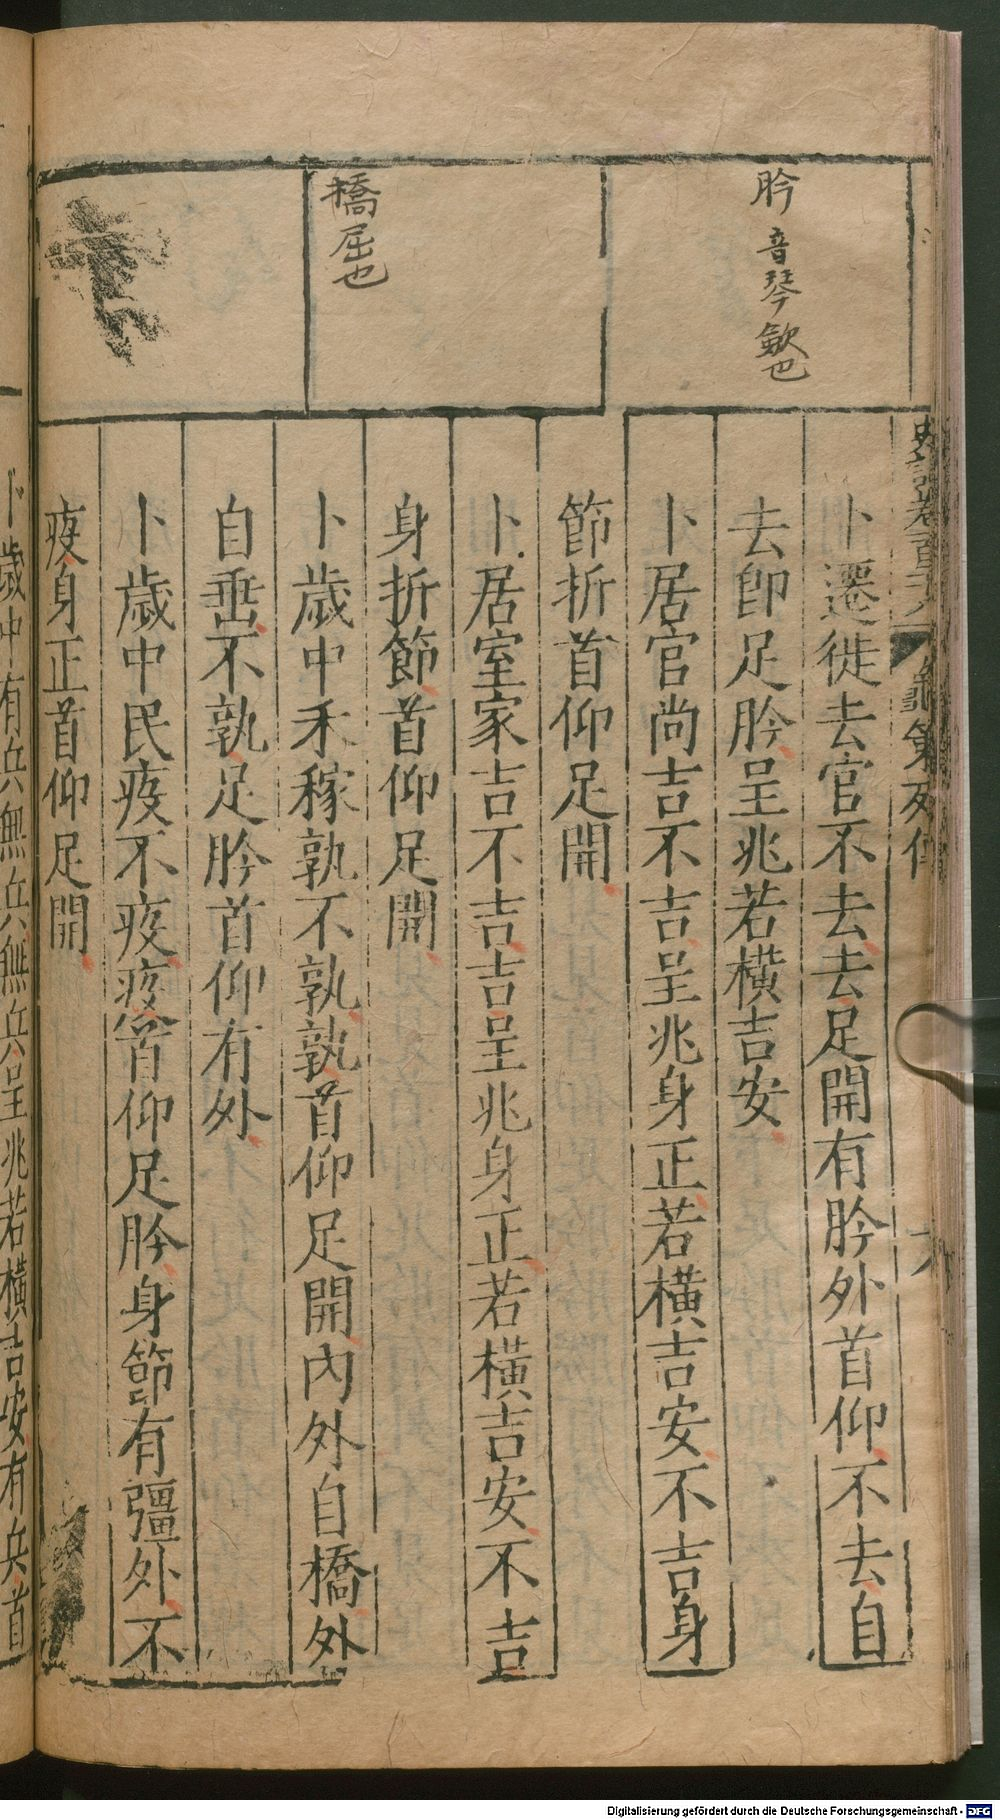 肣 音琴歛也
橋屈也
史記卷一百二十八 龜策列傳
卜遷徙去官不去去足開有肣外首仰不去自
去卽足肣呈兆若橫吉安
卜居官尚吉不吉呈兆身正若橫吉安不吉身
節折首仰足開
卜居室家吉不吉吉呈兆身正若橫吉安不吉
身折節首仰足開
卜歲中禾稼孰不孰孰首仰足開內外自橋外
自垂不孰足肣首仰有外
卜歲中民疫不疫疫首仰足肣身節有彊外不
疫身正首仰足開
卜歲中有兵無兵無兵呈兆若橫吉安有兵首
Digitalisierung gefördert durch die Deutsche Forschungsgemeinschaft - DFG